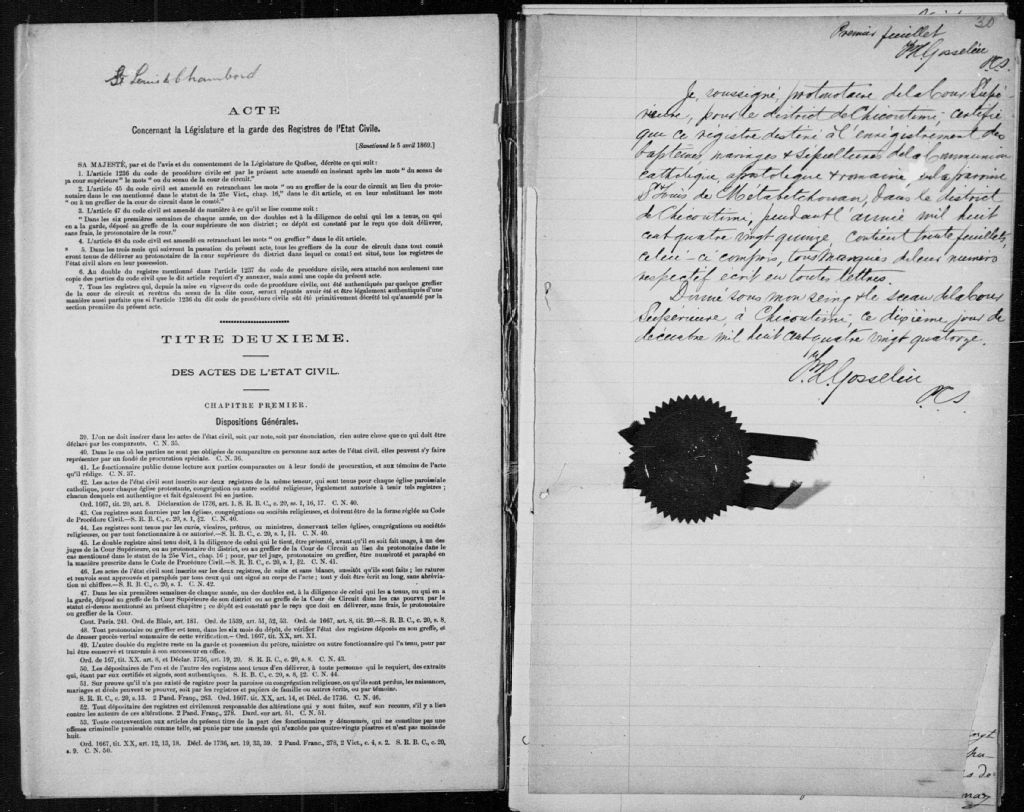 St Louis de Chambord
ACTE
Concernant la Législature et la garde des Registres de l'Etat Civile.
[Sanctionné le 5 avril 1869.]
SA MAJESTÉ, par et de l'avis et du consentement de la Législature de Québec, décrète ce qui suit :
1. L'article 1236 du code de procédure civile est par le présent acte amendé en insérant après les mots " du sceau de
sa cour supérieure " le mots " ou du sceau de la cour de circuit."
2. L'article 45 du code civil est amendé en retranchant les mots " ou au greffier de la cour de circuit au lieu du proto-
notaire dans le cas mentionné dans le statut de la 25e Vict., chap. 16," dans le dit article, et en leur substituant les mots
" ou à un greffier de la cour de circuit dans le comté."
3. L'article 47 du code civil est amendé de manière à ce qu'il se lise comme suit :
" Dans les six premières semaines de chaque année, un des doubles est à la diligence de celui qui les a tenus, ou qui
en a la garde, déposé au greffe de la cour supérieure de son district ; ce dépôt est constaté par le reçu que doit délivrer,
sans frais, le protonotaire de la cour."
4. L'article 48 du code civil est amendé en retranchant les mots " ou greffier " dans le dit article.
5. Dans les trois mois qui suivront la passation du présent acte, tous les greffiers de la cour de circuit dans tout comté
eront tenus de délivrer au protonotaire de la cour supérieure du district dans lequel ce comté est situé, tous les registres de
l'état civil alors en leur possession.
6. Au double du registre mentionné dans l'article 1237 du code de procédure civile, sera attaché non seulement une
copie des parties du code civil que le dit article requiert d'y annexer, mais aussi une copie du présent acte.
7. Tous les registres qui, depuis la mise en vigueur du code de procédure civile, ont été authentiqués par quelque greffier
de la cour de circuit et revêtus du sceau de la dite cour, seront réputés avoir été et être légalement authentiqués d'une
manière aussi parfaite que si l'article 1236 du dit code de procédure civile eût été primitivement décrété tel qu'amendé par la
section première du présent acte.
TITRE DEUXIEME.
DES ACTES DE L'ETAT CIVIL.
CHAPITRE PREMIER.
Dispositions Générales.
39. L'on ne doit insérer dans les actes de l'état civil, soit par note, soit par énonciation, rien autre chose que ce qui doit être
déclaré par les comparants. C. N. 35.
40. Dans le cas où les parties ne sont pas obligées de comparaître en personne aux actes de l'état civil, elles peuvent s'y faire
représenter par un fondé de procuration spéciale. C. N. 36.
41. Le fonctionnaire public donne lecture aux parties comparantes ou à leur fondé de procuration, et aux témoins de l'acte
qu'il rédige. C. N. 37.
42. Les actes de l'état civil sont inscrits sur deux registres de la même teneur, qui sont tenus pour chaque église paroissiale
catholique, pour chaque église protestante, congrégation ou autre société religieuse, légalement autorisée à tenir tels registres ;
chacun desquels est authentique et fait également foi en justice.
Ord. 1667, tit. 20, art. 8. Déclaration de 1736, art. 1. S. R. B. C., c. 20, ss. 1, 16, 17. C. N. 40.
43. Ces registres sont fournis par les églises, congrégations ou sociétés religieuses, et doivent être de la forme réglée au Code
de Procédure Civil.—S. R. B. C., c. 20, s. 1, §2. C. N. 40.
44. Les registres sont tenus par les curés, vicaires, prêtres, ou ministres, desservant telles églises, congrégations ou sociétés
religieuses, ou par tout fonctionnaire à ce autorisé.—S. R. B. C., c. 20, s. 1, §1. C. N. 40.
45. Le double registre ainsi tenu doit, à la diligence de celui qui le tient, être présenté, avant qu'il en soit fait usage, à un des
juges de la Cour Supérieure, ou au protonotaire du district, ou au greffier de la Cour de Circuit au lieu du protonotaire dans le
cas mentionné dans le statut de la 25e Vict., chap. 16 ; pour, par tel juge, protonotaire ou greffier, être numéroté et paraphé en
la manière prescrite dans le Code de Procédure Civil.—S. R. B. C., c. 20, s. 1, §2. C. N. 41.
46. Les actes de l'état civil sont inscrits sur les deux registres, de suite et sans blancs, aussitôt qu'ils sont faits ; les ratures
et renvois sont approuvés et paraphés par tous ceux qui ont signé au corps de l'acte ; tout y doit être écrit au long, sans abrévia-
tion ni chiffres.—S. R. B. C., c. 20, s. 1. C. N. 42.
47. Dans les six premières semaines de chaque année, un des doubles est, à la diligence de celui qui les a tenus, ou qui en a
la garde, déposé au greffe de la Cour Supérieure de son district ou au greffe de la Cour de Circuit dans les cas pourvus par le
statut ci-dessus mentionné au présent chapitre ; ce dépôt est constaté par le reçu que doit en délivrer, sans frais, le protonotaire
ou greffier de la Cour.
Cout. Paris. 241. Ord. de Blois, art. 181. Ord. de 1539, art. 51, 52, 53. Ord. de 1667, art. 8, tit. 20.—S. R. B. C., c. 20, s. 8.
48. Tout protonotaire ou greffier est tenu, dans les six mois du dépôt, de vérifier l'état des registres déposés en son greffe, et
de dresser procès-verbal sommaire de cette vérification.—Ord. 1667, tit. XX, art. XI.
49. L'autre double du registre reste en la garde et possession du prêtre, ministre ou autre fonctionnaire qui l'a tenu, pour par
lui être conservé et transmis à son successeur en office.
Ord. de 167, tit. XX. art. 8, et Déclar. 1736, art. 19, 20. S. R. B. C., c. 20, s. 8. C. N. 43.
50. Les dépositaires de l'un et de l'autre des registres sont tenus d'en délivrer, à toute personne qui le requiert, des extraits
qui, étant par eux certifiés et signés, sont authentiques. S. R. B. C., c. 20, s. 8, §2. C. N. 44.
51. Sur preuve qu'il n'a pas existé de registre pour la paroisse ou congrégation religieuse, ou qu'ils sont perdus, les naissances,
mariages et décès peuvent se prouver, soit par les registres et papiers de famille ou autres écrits, ou par témoins.
S. R. B. C., c. 20, s. 13. 2 Pand. Franç., 263. Ord. 1667, tit. XX, art. 14, et Décl. de 1736. C. N. 46.
52. Tout dépositaires des registres est civilement responsable des altérations qui y sont faites, sauf son recours, s'il y a lieu
contre les auteurs de ces altérations. 2 Pand. Franç., 278. Dard. sur art. 51. C. N. 51.
53. Toute contravention aux articles du présent titre de la part des fonctionnaires y dénommés, qui ne constitue pas une
offense criminelle punissable comme telle, est punie par une amende qui n'excède pas quatre-vingts piastres et n'est pas moins de
huit.
Ord. 1667, tit, XX, art. 12, 13, 18. Décl. de 1736, art. 19, 33, 39. 2 Pand. Franç., 278, 2 Vict., c. 4, s. 2. S. R. B. C., c. 20,
s. 9. C. N. 50.
30
Premier feuillet
Gosselin
P.C.S.
Je, soussigné, protonotaire de la Cour Supé-
rieure, pour le district de Chicoutimi, certifie
que ce régistre destiné à l'enrégistrement des
baptêmes, mariages & sépultures de la Communion
Catholique, apostolique & romaine, en la paroisse
St Louis de Métabetchouan, dans le district
de Chicoutimi, pendant l'année mil huit
cent quatre vingt quinze, contient trente feuillets,
celui-ci compris, tous marqués de leur numéro
respectif écrit en toutes lettres.
Donné sous mon seing & le sceau de la Cour
Supérieure, à Chicoutimi, ce dixième jour de
décembre mil huit cent quatre vingt quatorze.
Gosselin
P.C.S.